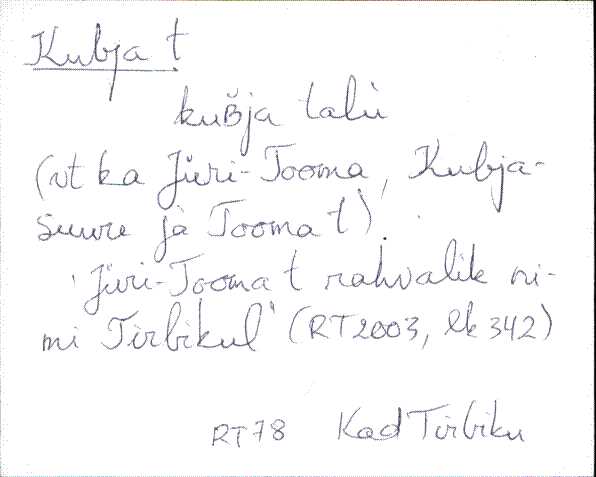 Kubja t
kuʙ̆ja talù
(vt ka Jüri-Tooma, Kubja-
Suure ja Tooma t).
'Jüri-Tooma t rahvalik ni-
mi Tirbikul' (RT2003, lk 342)
RT78 Kad Tirbiku